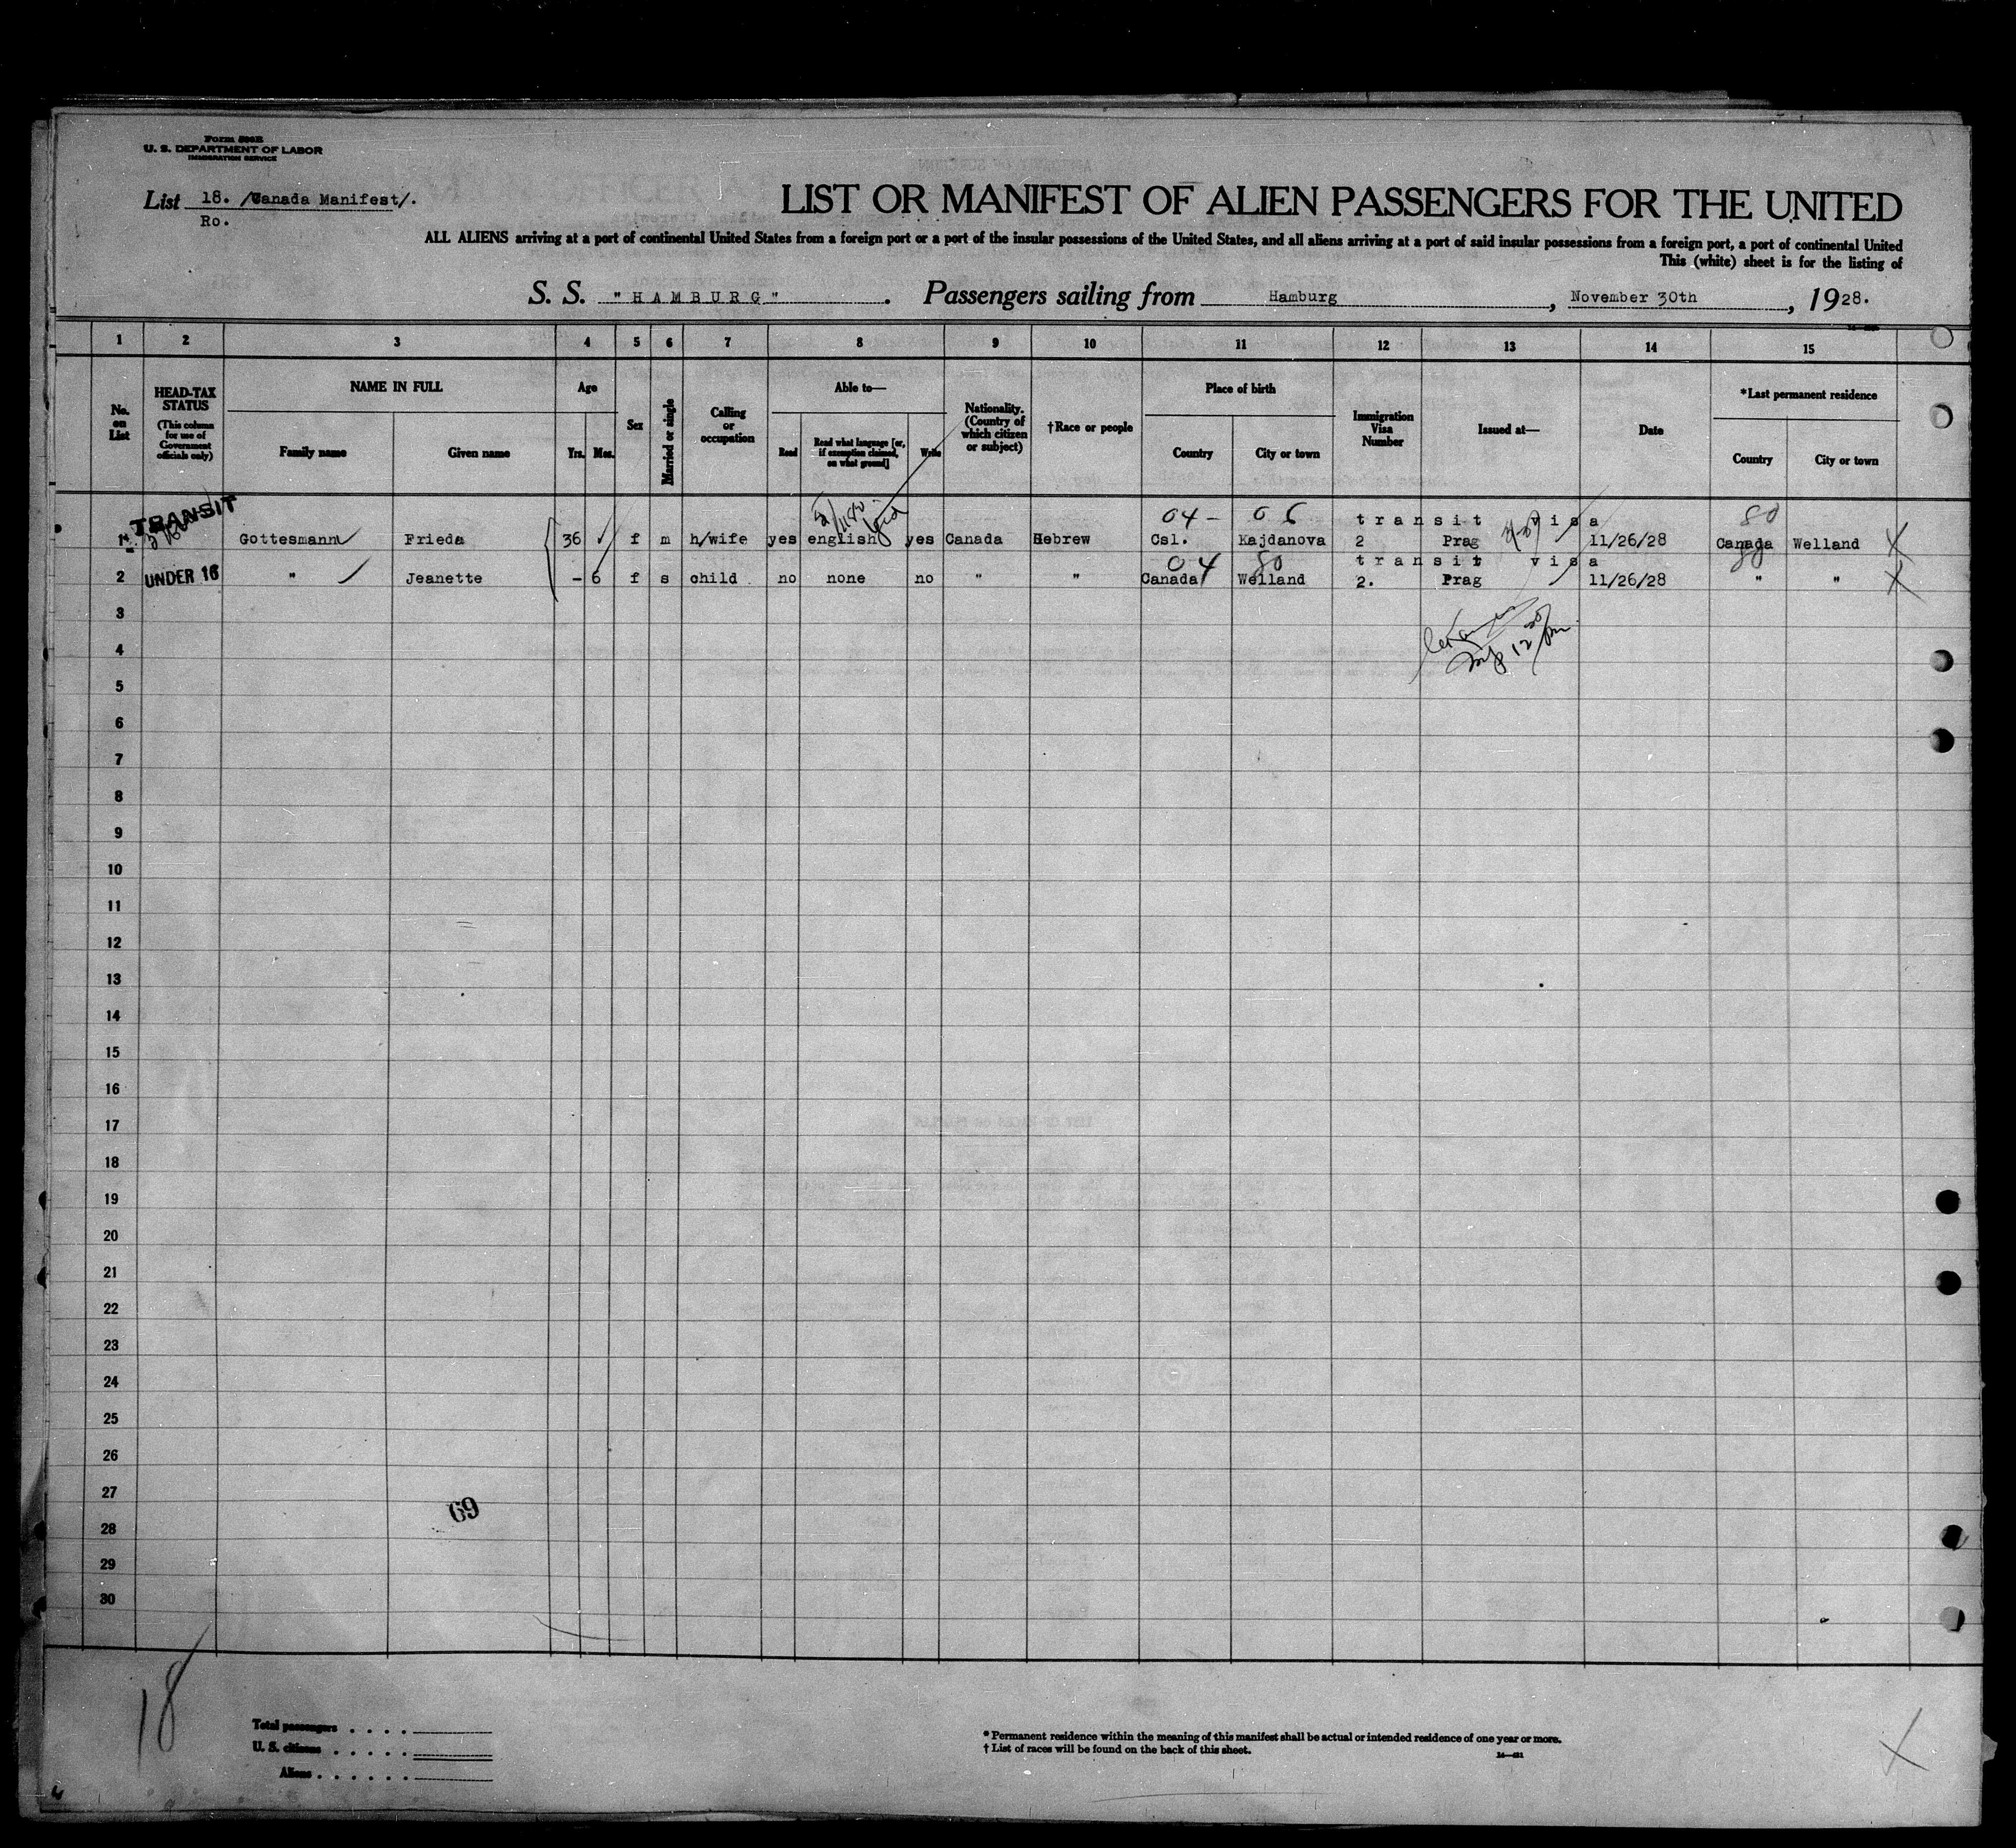 Form 500B
U. S. DEPARTMENT OF LABOR
IMMIGRATION SERVICE
List 18. /Canada Manifest/.
Ro.
LIST OR MANIFEST OF ALIEN PASSENGERS FOR THE UNITED
ALL ALIENS arriving at a port of continental United States from a foreign port or a port of the insular possessions of the United States, and all aliens arriving at a port of said insular possessions from a foreign port, a port of continental United
This (white) sheet is for the listing of
S. S. "HAMBURG" . Passengers sailing from Hamburg, November 30th, 1928.
1 2 3 4 5 6 7 8 9 10 11 12 13 14 15
No. on List
HEAD-TAX STATUS
(This column for use of Government officials only)
NAME IN FULL
Family name Given name
Age
Yrs. Mos.
Sex
Married or single
Calling or occupation
Able to—
Read Read what language [or, if exemption claimed, on what ground] Write
Nationality. (Country of which citizen or subject)
†Race or people
Place of birth
Country City or town
Immigration Visa Number
Issued at—
Date
*Last permanent residence
Country City or town
TRANSIT 04- 06 transit visa 80
1 Gottesmann Frieda 36 f m h/wife yes english yes Canada Hebrew Csl. Kajdanova 2 Prag 11/26/28 Canada Welland X
04 80 transit visa 80
2 UNDER 16 " Jeanette - 6 f s child no none no " " Canada Welland 2. Prag 11/26/28 " " X
3
4
5
6
7
8
9
10
11
12
13
14
15
16
17
18
19
20
21
22
23
24
25
26
27
69
28
29
30
18
Total passengers . . . .
U. S. citizens . . . . .
Aliens . . . . . .
* Permanent residence within the meaning of this manifest shall be actual or intended residence of one year or more.
† List of races will be found on the back of this sheet.
X